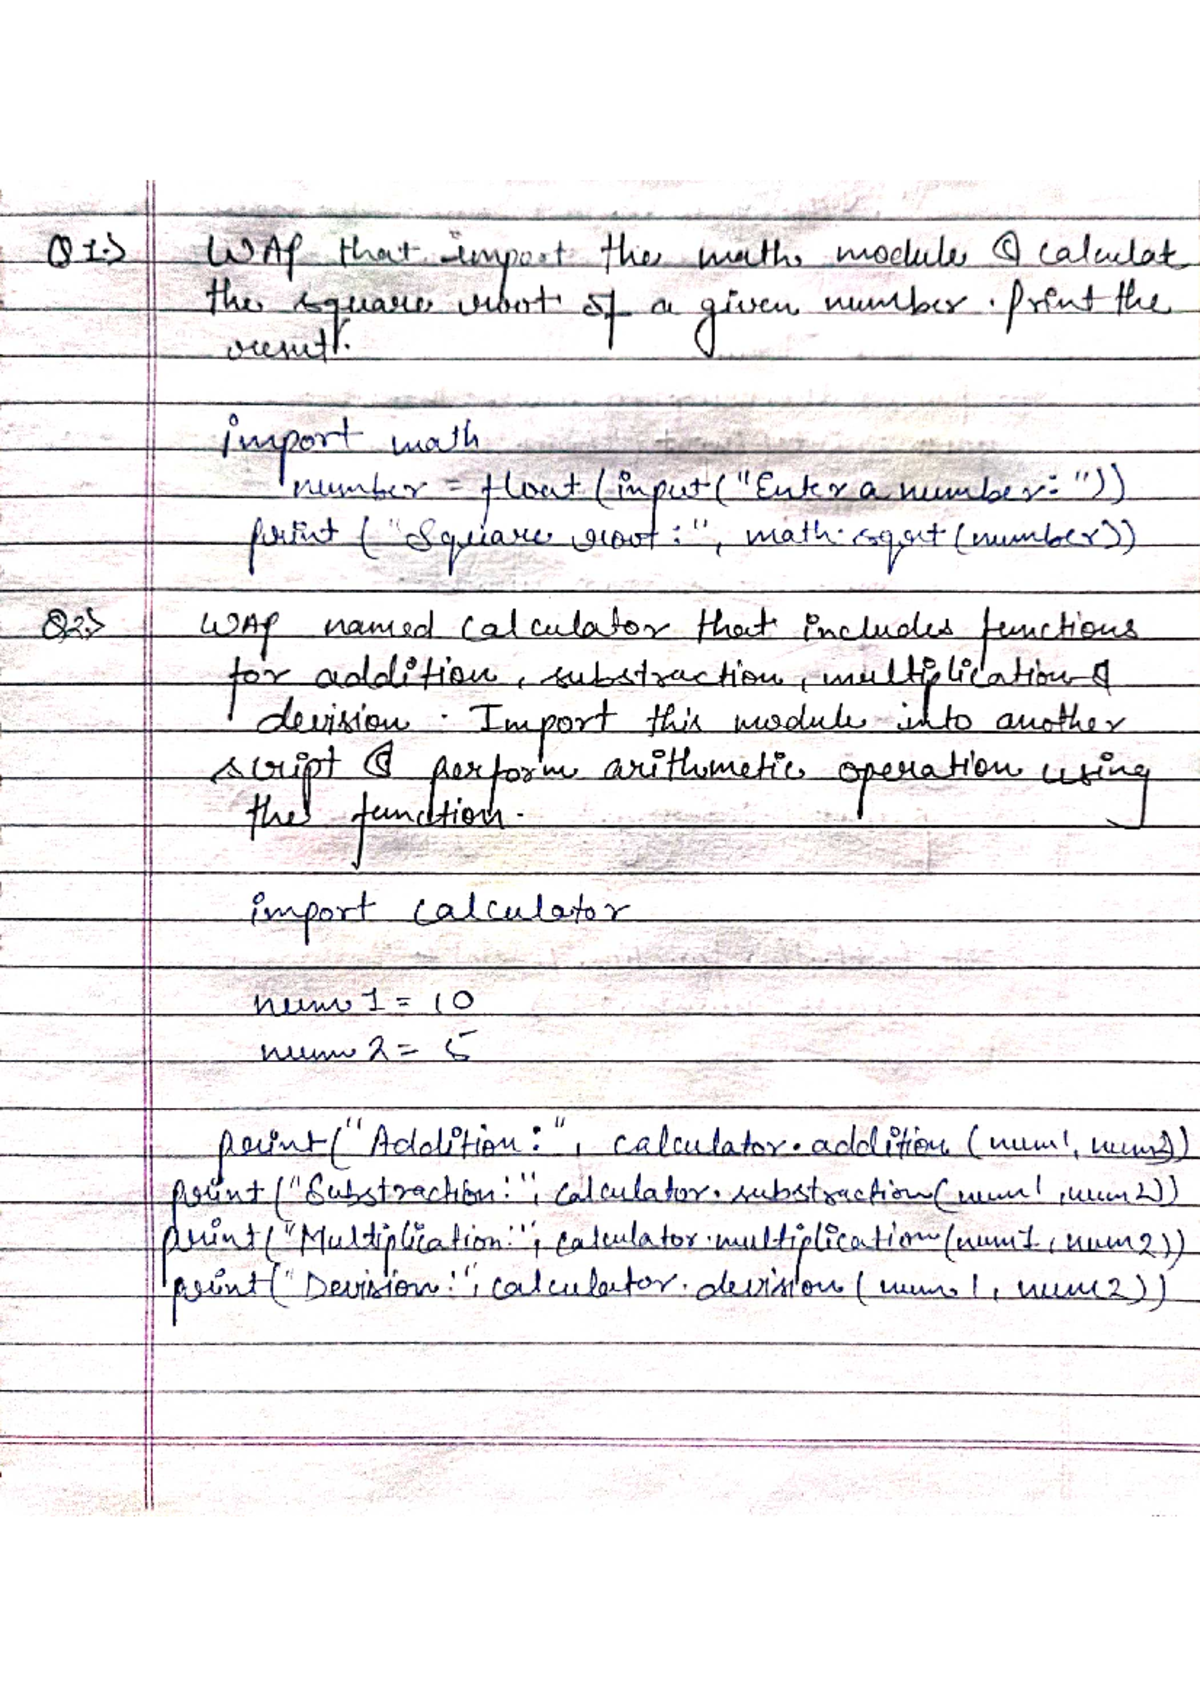 Q1.> WAP that import the math module & calculat
the square root of a given number. Print the
result.
import math
number = float (input ("Enter a number: "))
print ("Square root:", math.sqrt (number))
Q2.> WAP named calculator that includes functions
for addition, substraction, multiplication &
devision. Import this module into another
script & perform arithmetic operation using
the function.
import calculator
num1 = 10
num2 = 5
print ("Addition:", calculator.addition (num1, num2))
print ("Substraction:", calculator.substraction (num1, num2))
print ("Multiplication:", calculator.multiplication (num1, num2))
print ("Devision:", calculator.devision (num1, num2))